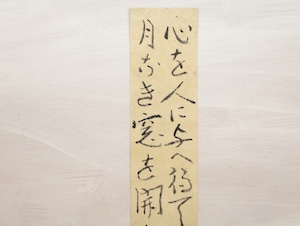 心を人に与へ得て
月なき窓を開